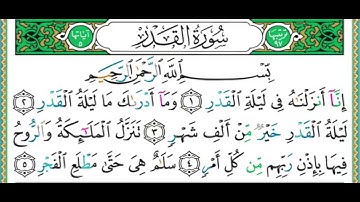 ترتيبها ٩٧ سُورَةُ الْقَدْرِ آياتها ٥
بِسْمِ اللَّهِ الرَّحْمَٰنِ الرَّحِيمِ
إِنَّآ أَنزَلْنَٰهُ فِى لَيْلَةِ الْقَدْرِ ١ وَمَآ أَدْرَىٰكَ مَا لَيْلَةُ الْقَدْرِ ٢
لَيْلَةُ الْقَدْرِ خَيْرٌ مِّنْ أَلْفِ شَهْرٍ ٣ تَنَزَّلُ الْمَلَٰٓئِكَةُ وَالرُّوحُ
فِيهَا بِإِذْنِ رَبِّهِم مِّن كُلِّ أَمْرٍ ٤ سَلَٰمٌ هِىَ حَتَّىٰ مَطْلَعِ الْفَجْرِ ٥